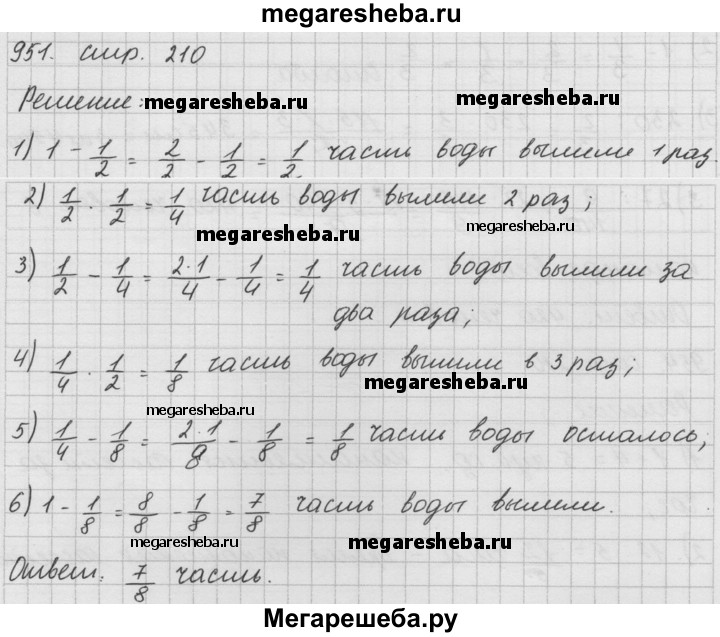 megaresheba.ru
951. стр. 210
Решение: megaresheba.ru megaresheba.ru
1) 1 - 1/2 = 2/2 - 1/2 = 1/2 часть воды вылили 1 раз.
2) 1/2 · 1/2 = 1/4 часть воды вылили 2 раз;
megaresheba.ru megaresheba.ru
3) 1/2 - 1/4 = 2·1/4 - 1/4 = 1/4 часть воды вылили за
два раза;
4) 1/4 · 1/2 = 1/8 часть воды вылили в 3 раз;
megaresheba.ru
megaresheba.ru
5) 1/4 - 1/8 = 2·1/8 - 1/8 = 1/8 часть воды осталось;
6) 1 - 1/8 = 8/8 - 1/8 = 7/8 часть воды вылили.
megaresheba.ru megaresheba.ru
Ответ: 7/8 часть.
Мегарешеба.ру